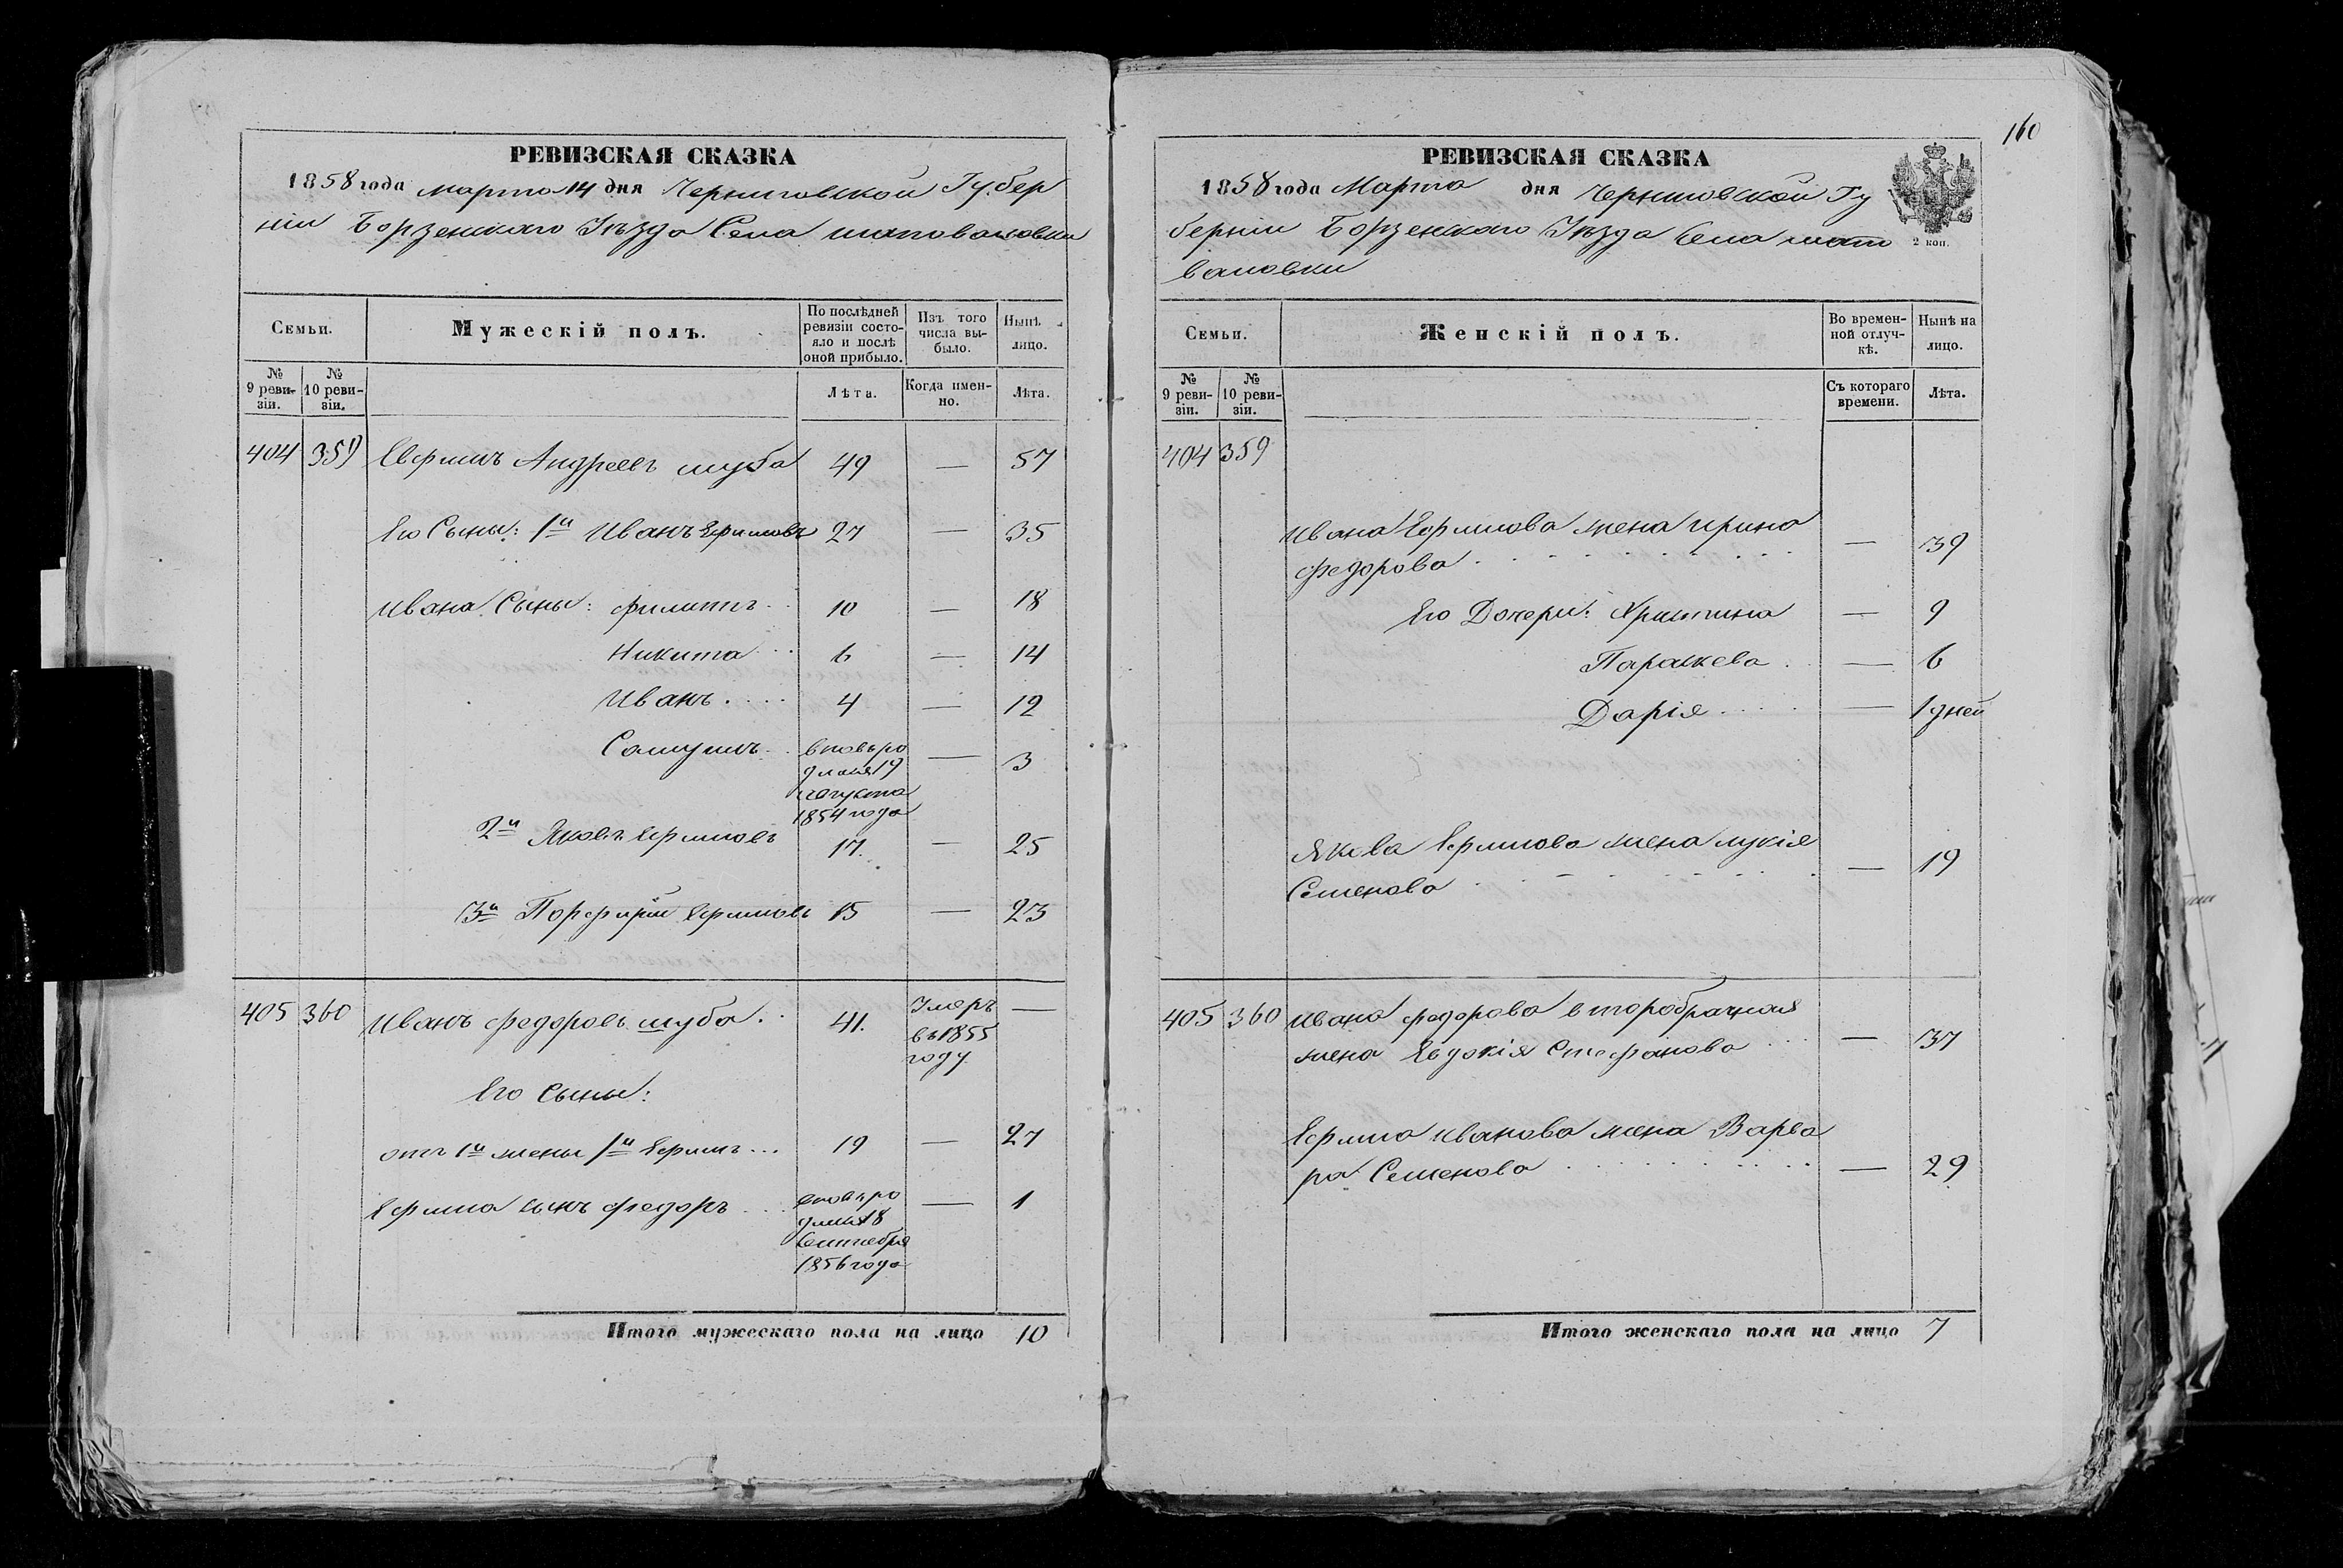 РЕВИЗСКАЯ СКАЗКА
1858 года марта 14 дня Черниговской Губер
ніи Борзенскаго Уѣзда Села шаповаловки
Семьи. Мужескій полъ. По послѣдней ревизіи состояло и послѣ оной прибыло. Изъ того числа выбыло. Нынѣ лицо.
№ 9 ревизіи. № 10 ревизіи. Лѣта. Когда именно. Лѣта.
404 359 Ефимъ Андреевъ шуба 49 — 57
Его Сыны: 1й Иванъ Ефимовъ 27 — 35
Ивана Сыны: филипъ 10 — 18
Никита 6 — 14
Иванъ 4 — 12
Самуилъ вновь ро — 3
дился 19
августа
1854 года
2й Яковъ Ефимовъ 17. — 25
3й Порфирій Ефимовъ 15 — 23
405 360 Иванъ федоровъ шуба 41. Умеръ —
въ 1855
году
Его сыны:
отъ 1й жены 1й Ефимъ 19 — 27
Ефима сынъ федоръ вновь ро — 1
дился 8
Сентября
1856 года
Итого мужескаго пола на лицо 10
160
РЕВИЗСКАЯ СКАЗКА
1858 года Марта дня Черниговской Гу
берніи Борзенскаго Уѣзда Села шапо
валовки
2 коп.
Семьи. Женскій полъ. Во временной отлучкѣ. Нынѣ на лицо.
№ 9 ревизіи. № 10 ревизіи. Съ котораго времени. Лѣта.
404 359
Ивана Ефимова жена ирина
федорова — 39
Его Дочери: Христина — 9
Параскева — 6
Дарія — 1 дней
Якова Ефимова жена лукія
Семенова — 19
405 360 Ивана федорова второбрачная
жена Евдокія Стефанова — 37
Ефима иванова жена Варва
ра Семенова — 29
Итого женскаго пола на лицо 7